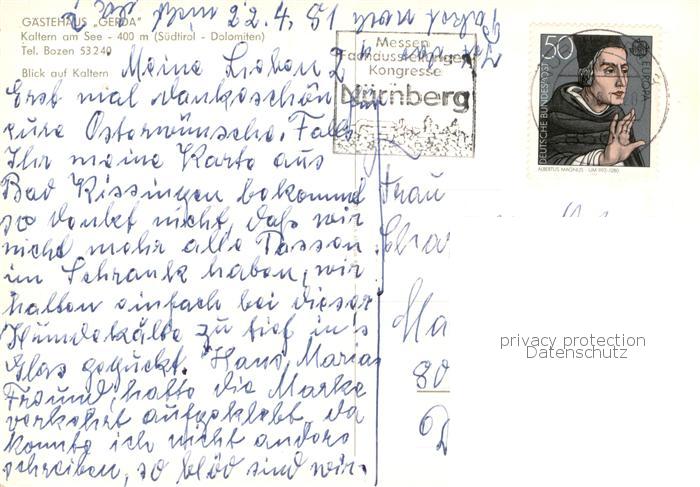 GÄSTEHAUS „GERDA"
Kaltern am See - 400 m (Südtirol - Dolomiten)
Tel. Bozen 53240
Blick auf Kaltern
22.4.81
Meine Lieben 2
Erst mal dankeschön für
eure Osterwünsche. Falls
Ihr meine Karte aus
Bad Kissingen bekommt
so denkt nicht, daß wir
nicht mehr alle Tassen
im Schrank haben, wir
hatten einfach bei dieser
Hundekälte zu tief in's
Glas geguckt. Hans, Marias
Freund, hatte die Marke
verkehrt aufgeklebt, da
konnte ich nicht anders
schreiben, so blöd sind wir.
Messen
Fachausstellungen
Kongresse
Nürnberg
50
DEUTSCHE BUNDESPOST
EUROPA
ALBERTUS MAGNUS · UM 1193-1280
Frau
Char
Ma
80
privacy protection
Datenschutz